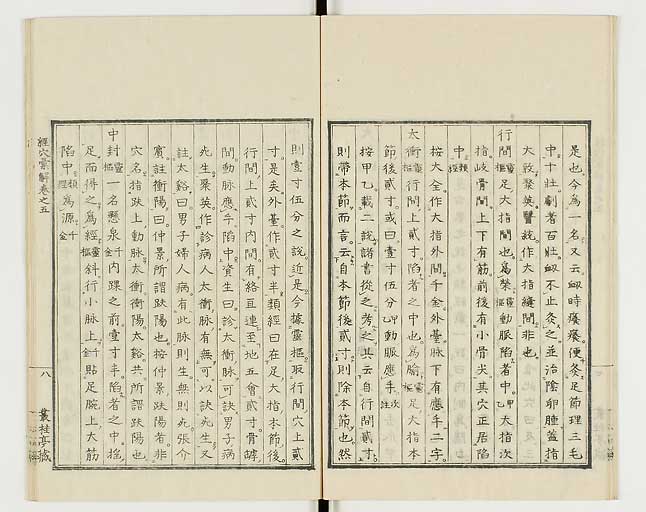 是也今為一名又云衄時癢癢便灸足節理三毛
中十壯劇者百壯衄不止灸之並治陰卵腫蓋指
大敦聚英醫統作大指縫間非也
行間靈樞足大指間也為滎靈樞動脈陷者中甲乙大指次
指岐骨間上下有筋前後有小骨尖其穴正居陷
中類經
按大全作大指外間千金外臺脈下有應手二字
太衝靈樞行間上貳寸陷者之中也為腧靈樞足大指本
節後貳寸或曰壹寸伍分甲乙動脈應手次註
按甲乙載二說諸書從之考之其云自行間貳寸
則帶本節而言云自本節後貳寸則除本節也然
則壹寸伍分之說近是今據靈樞取行間穴上貳
寸是矣外臺作貳寸半類經曰在足大指本節後
行間上貳寸內間有絡亘連至地五會貳寸骨罅
間動脈應手陷中資生曰診太衝脈可訣男子病
死生聚英作診病人太衝脈有無可以訣死生又
註太谿曰男子婦人病有此脈則生無則死張介
賓註衝陽曰仲景所謂趺陽也按仲景趺陽者非
穴名指趺上動脈太衝衝陽太谿共所謂趺陽也
中封靈樞一名懸泉千金內踝之前壹寸半陷者之中捻
足而得之為經靈樞斜行小脈上千金貼足腕上大筋
陷中類經為源千金
經穴彙解卷之五
八
叢桂亭藏